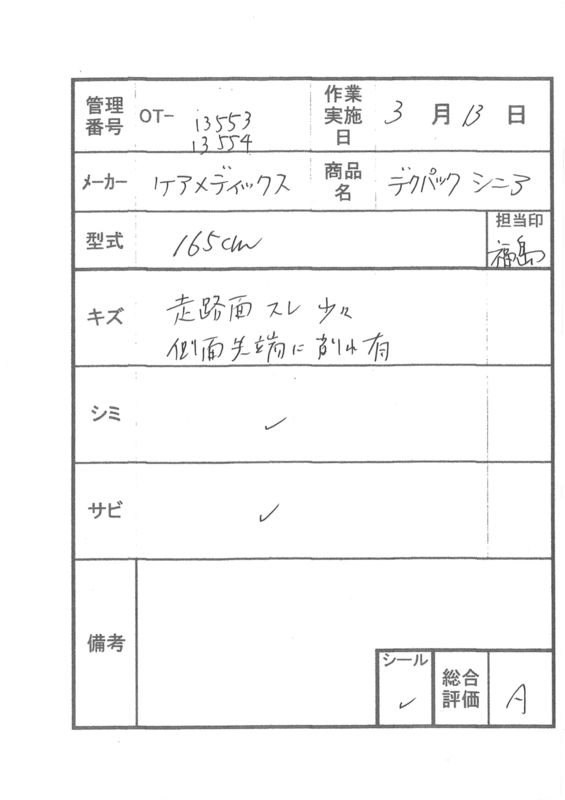 管理番号 OT- 13553
13554
作業実施日 3 月 13 日
メーカー ケアメディックス 商品名 デクパック シニア
型式 165cm 担当印 福島
キズ 走路面 スレ 少々
側面先端に 削れ 有
シミ ✓
サビ ✓
備考
シール ✓ 総合評価 A